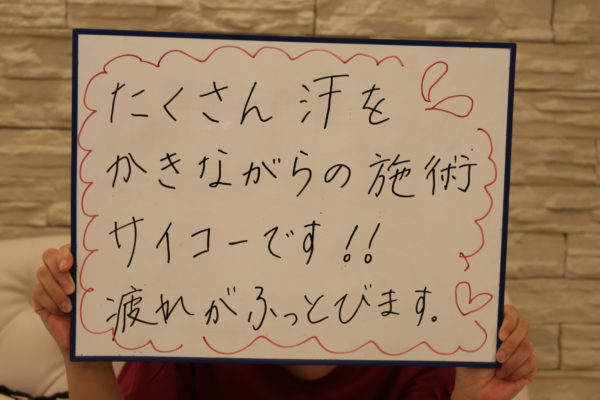 たくさん汗を
かきながらの施術
サイコーです!!
疲れがふっとびます。